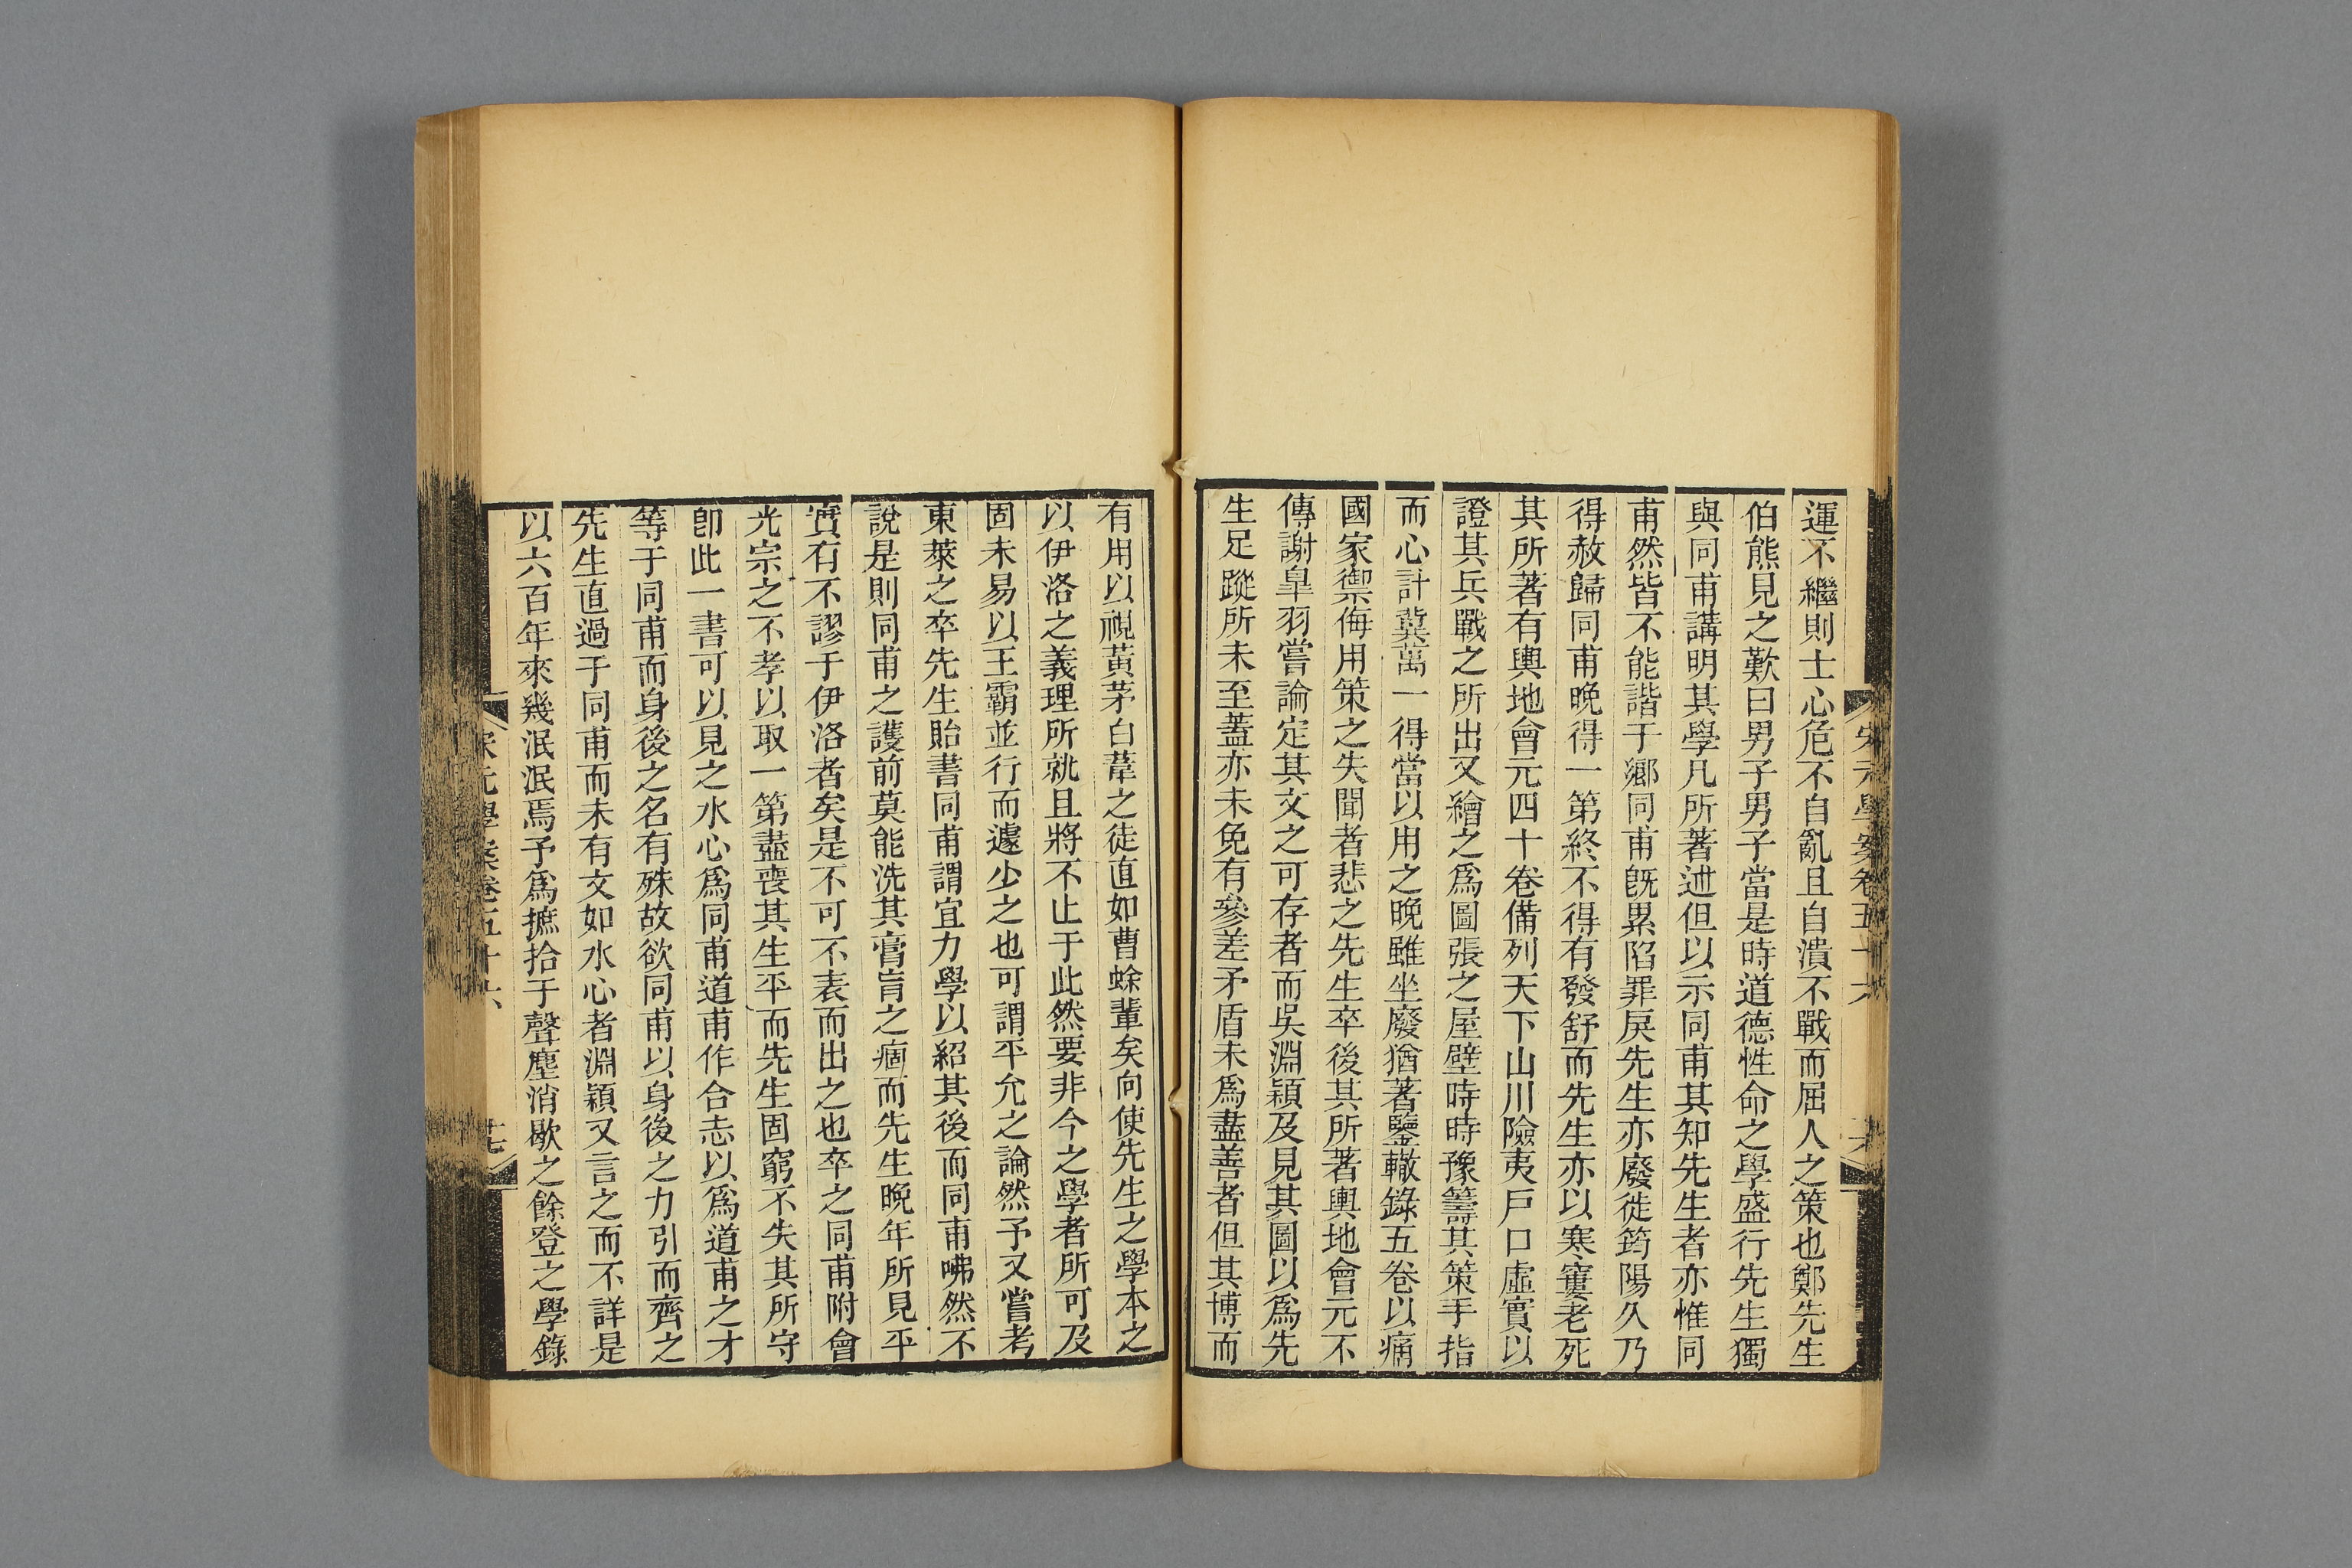 運不繼則士心危不自亂且自潰不戰而屈人之策也鄭先生
伯熊見之歎曰男子男子當是時道德性命之學盛行先生獨
與同甫講明其學凡所著述但以示同甫其知先生者亦惟同
甫然皆不能諧于鄉同甫旣累陷罪戾先生亦廢徙筠陽久乃
得赦歸同甫晚得一第終不得有發舒而先生亦以寒窶老死
其所著有輿地會元四十卷備列天下山川險夷戶口虛實以
證其兵戰之所出又繪之爲圖張之屋壁時時豫籌其策手指
而心計冀萬一得當以用之晚雖坐廢猶著鑒轍錄五卷以痛
國家禦侮用策之失聞者悲之先生卒後其所著輿地會元不
傳謝皐羽嘗論定其文之可存者而吳淵穎及見其圖以爲先
生足蹤所未至蓋亦未免有參差矛盾未爲盡善者但其博而
宋元學案卷五十六
有用以視黃茅白葦之徒直如曹蜍輩矣向使先生之學本之
以伊洛之義理所就且將不止于此然要非今之學者所可及
固未易以王霸並行而遽少之也可謂平允之論然予又嘗考
東萊之卒先生貽書同甫謂宜力學以紹其後而同甫咈然不
說是則同甫之護前莫能洗其膏肓之痼而先生晚年所見平
實有不謬于伊洛者矣是不可不表而出之也卒之同甫附會
光宗之不孝以取一第盡喪其生平而先生固窮不失其所守
卽此一書可以見之水心爲同甫道甫作合志以爲道甫之才
等于同甫而身後之名有殊故欲同甫以身後之力引而齊之
先生直過于同甫而未有文如水心者淵穎又言之而不詳是
以六百年來幾泯泯焉予爲摭拾于聲塵消歇之餘登之學錄
宋元學案卷五十六